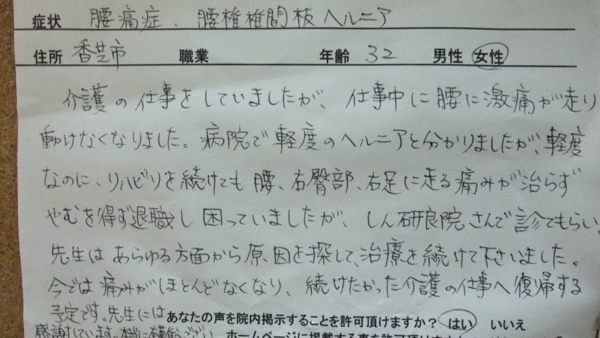 症状 腰痛症、腰椎椎間板ヘルニア
住所 香芝市 職業 年齢 32 男性 女性
介護の仕事をしていましたが、仕事中に腰に激痛が走り
動けなくなりました。病院で軽度のヘルニアと分かりましたが、軽度
なのに、リハビリを続けても腰、右臀部、右足に走る痛みが治らず
やむを得ず退職し困っていましたが、しん研良院さんで診てもらい、
先生はあらゆる方面から原因を探して、治療を続けて下さいました。
今では痛みがほとんどなくなり、続けたかった介護の仕事へ復帰する
予定です。先生には あなたの声を院内掲示することを許可頂けますか? はい いいえ
感謝しています。